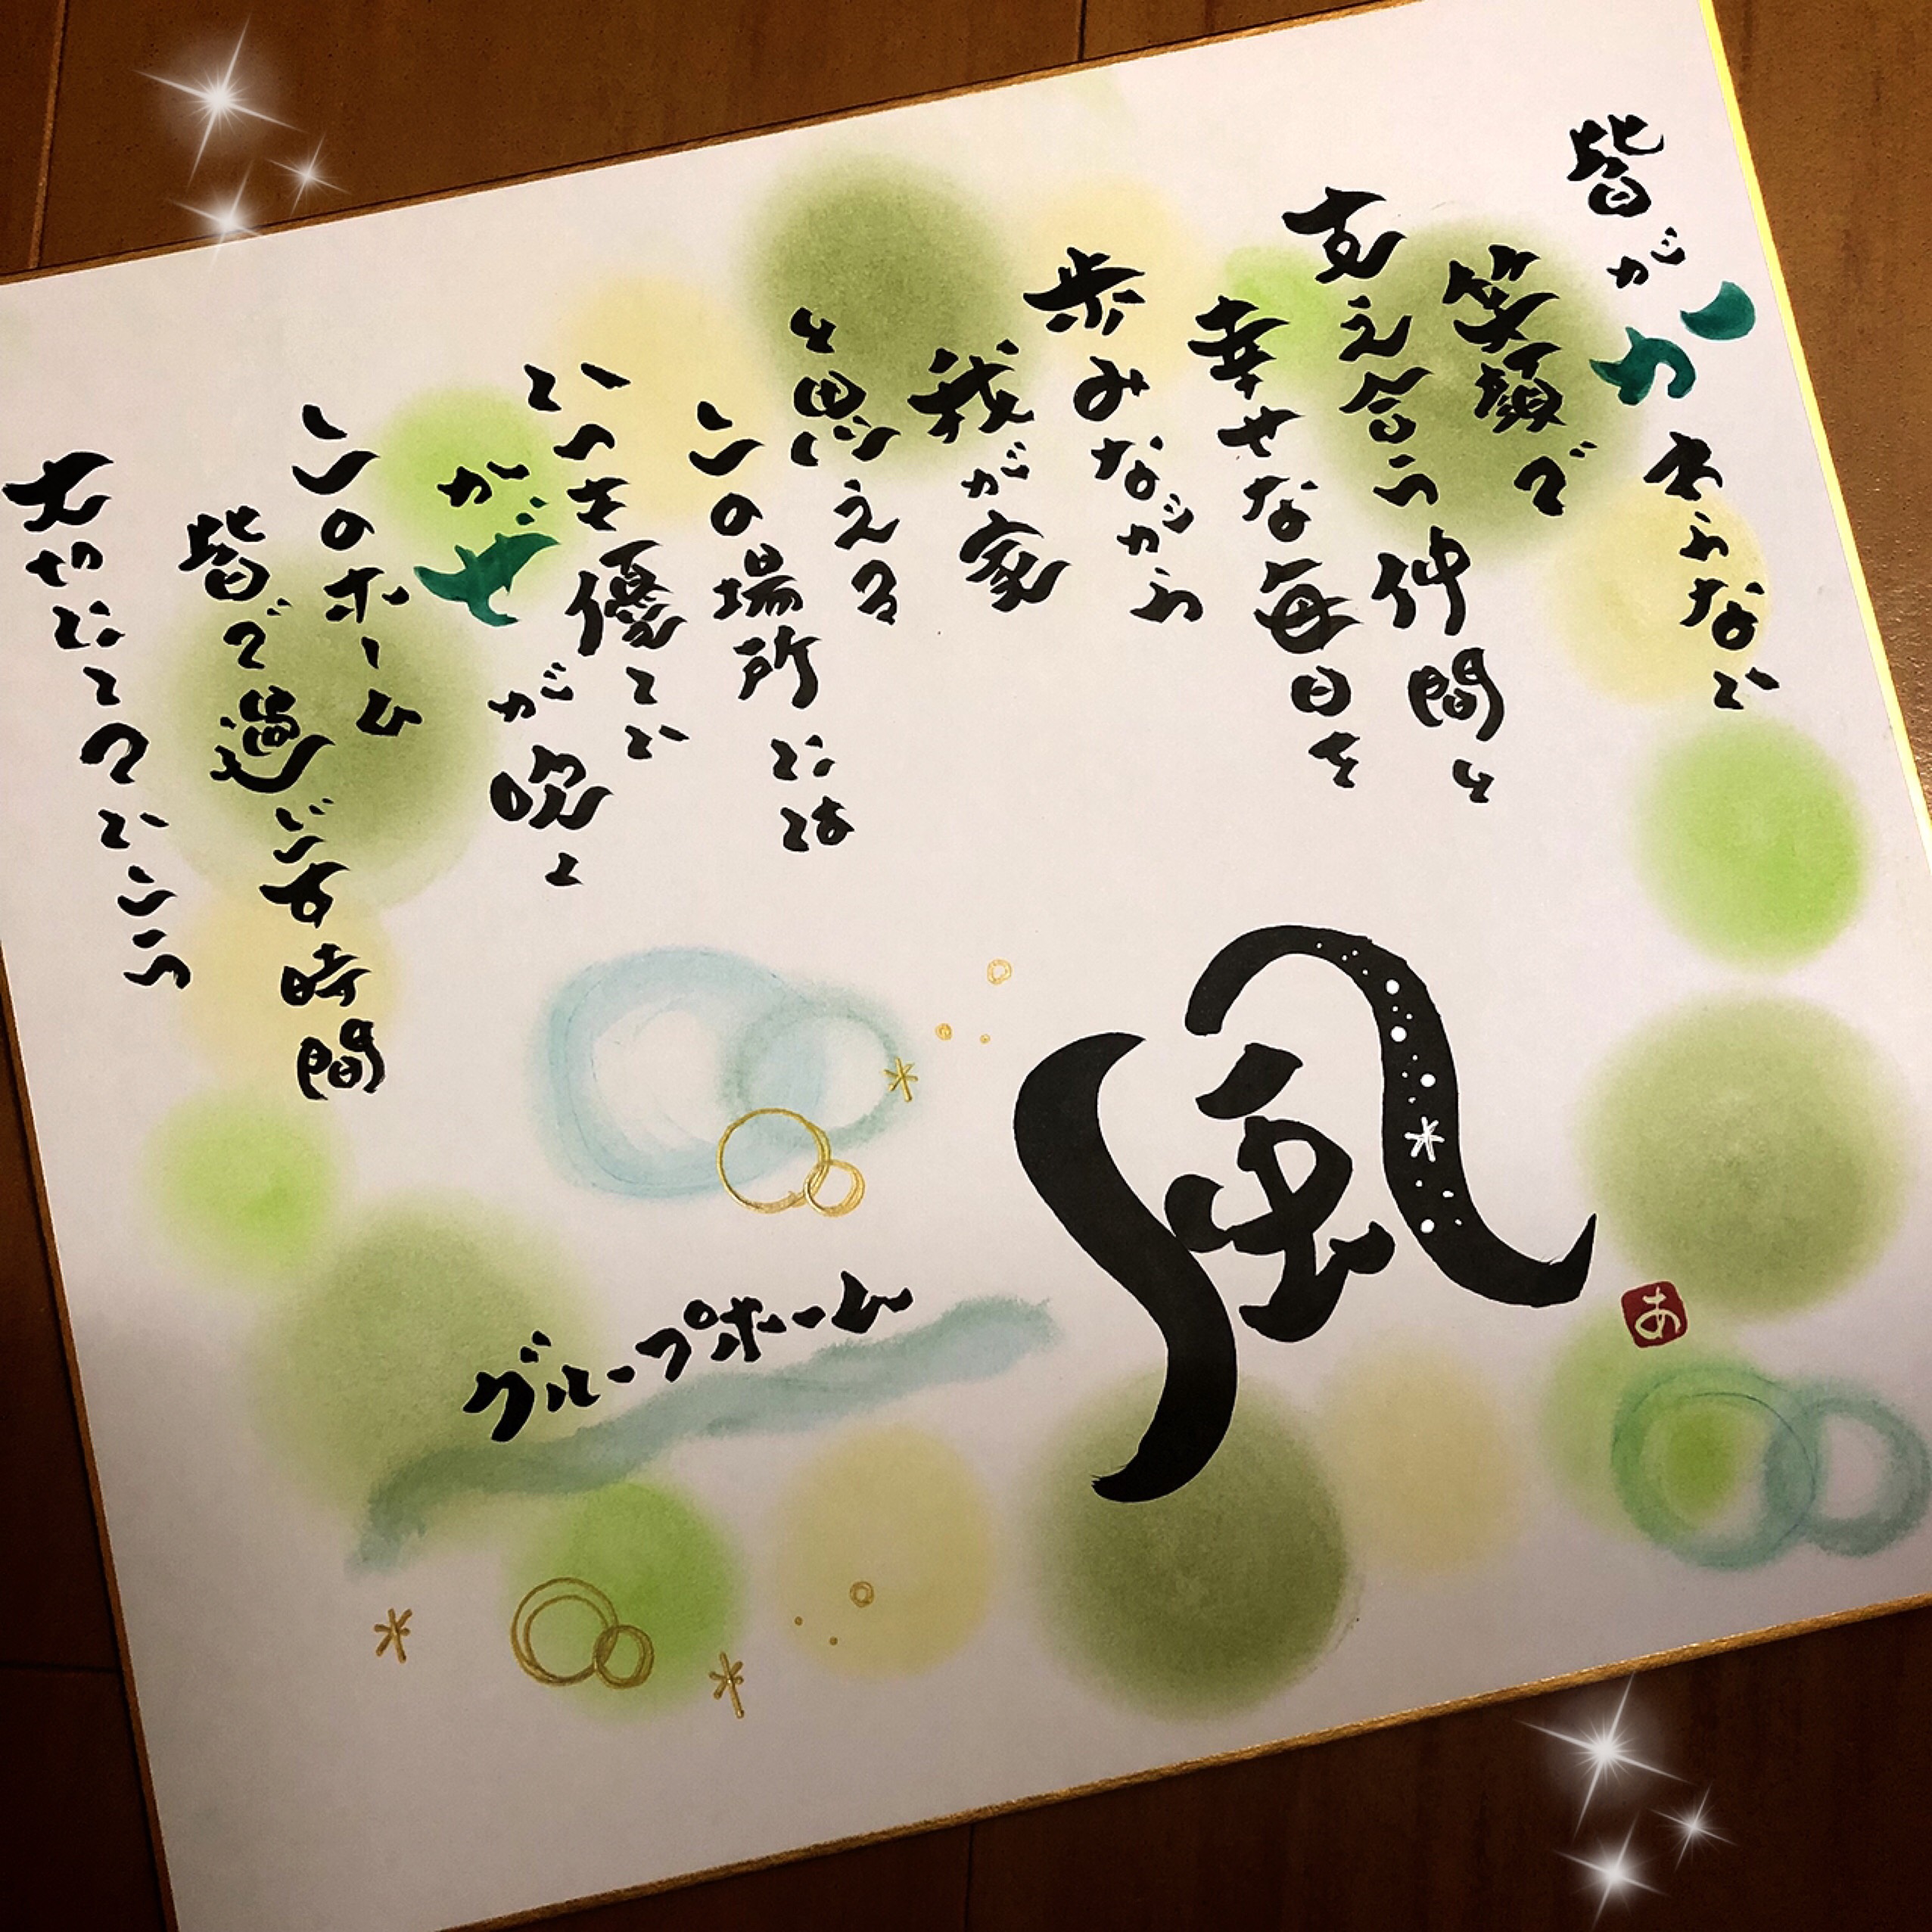 皆がかわらない
笑顔で
支え合う仲間と
幸せな毎日を
歩みながら
我が家
と思える
この場所には
いつも優しい
かぜが吹く
このホーム
皆で過ごす時間
大切にしていこう
風
グループホーム
あ